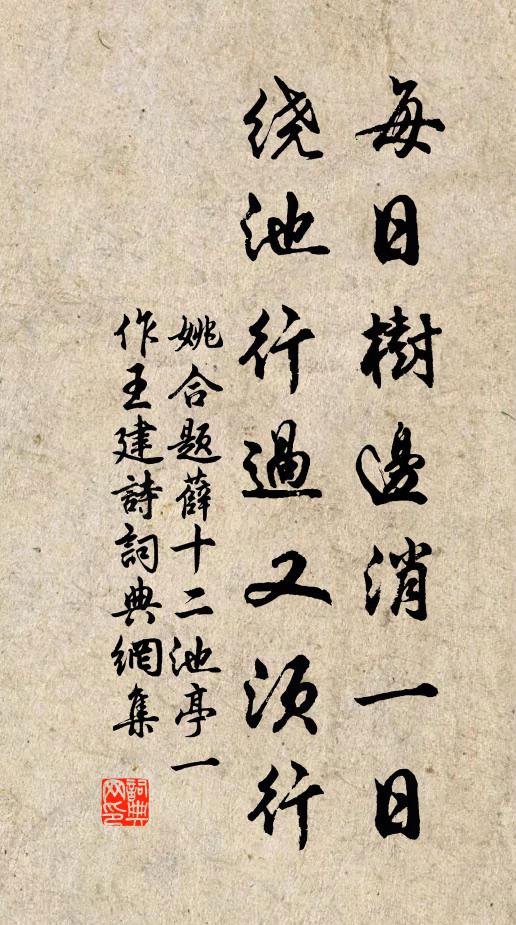 每日樹邊消一日
绕池行過又須行
姚合題薛十二池亭一
作王建詩詞典網集
詞典網印